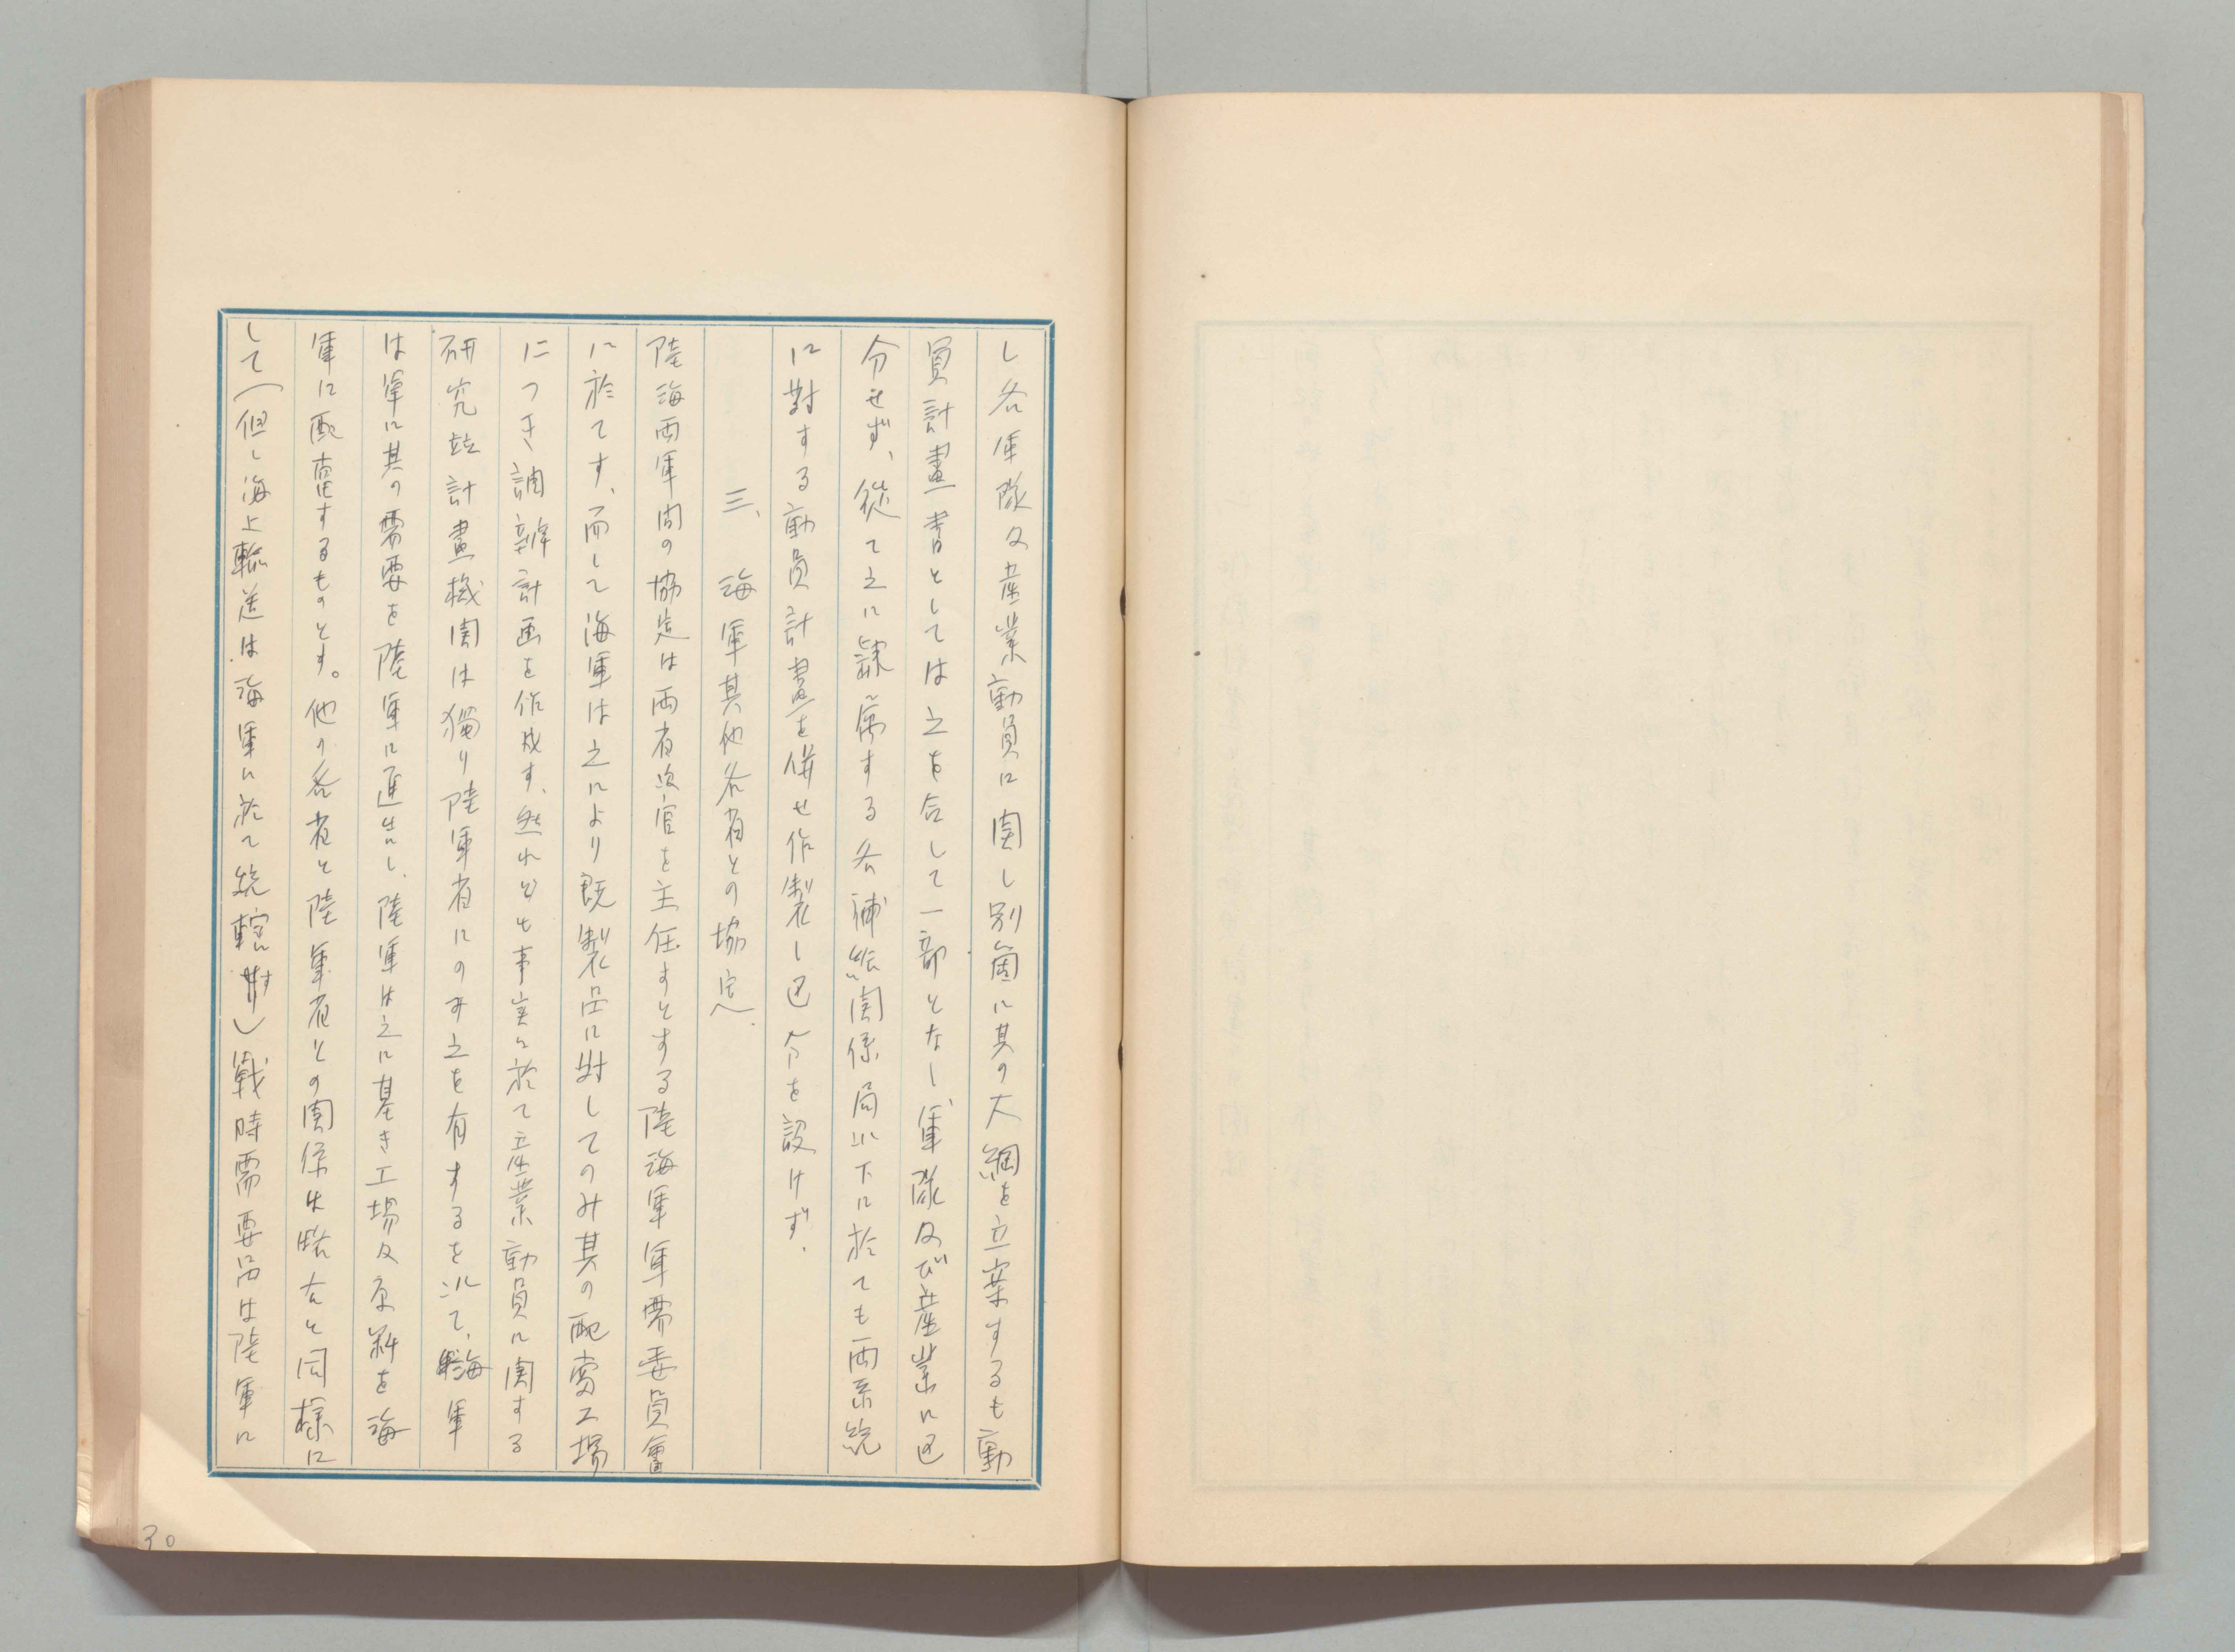 し各軍隊及産業動員に関し別箇に其の大綱を立案するも動
員計畫書としては之を合して一部となし軍隊及び産業に区
分せず、従て之に隷属する各補給関係局以下に於ても両系統
に對する動員計畫を併せ作製し区分を設けず.
三、海軍其他各省との協定.
陸海両軍間の協定は両省次官を主任すとする陸海軍軍需委員會
に於てす、而して海軍は之により既製品に対してのみ其の配當工場
につき調辨計画を作成す、然れども事実に於て産業動員に関する
研究並計畫機関は獨り陸軍省にのみ之を有するを以て、海軍
は軍に其の需要を陸軍に通告し、陸軍は之に基き工場及原料を海
軍に配當するものとす。他の各省と陸軍省との関係は略右と同様に
して(但し海上輸送は海軍に於て統轄す)戦時需要品は陸軍に
30